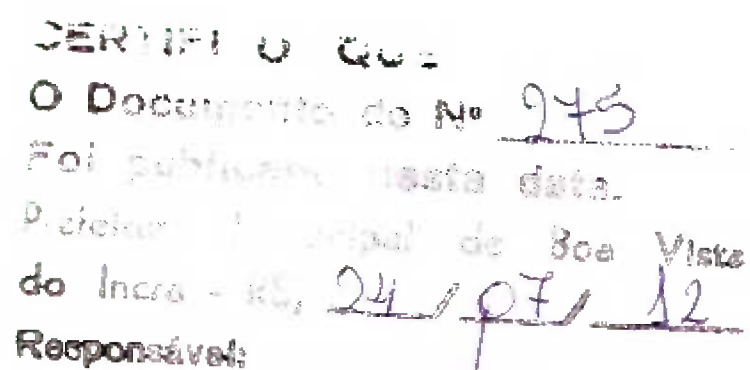 CERTIFICO QUE
O Documento do Nº 275
Foi publicado nesta data.
Prefeitura Municipal de Boa Vista
do Incra - RS, 24 / 07 / 12
Responsável: